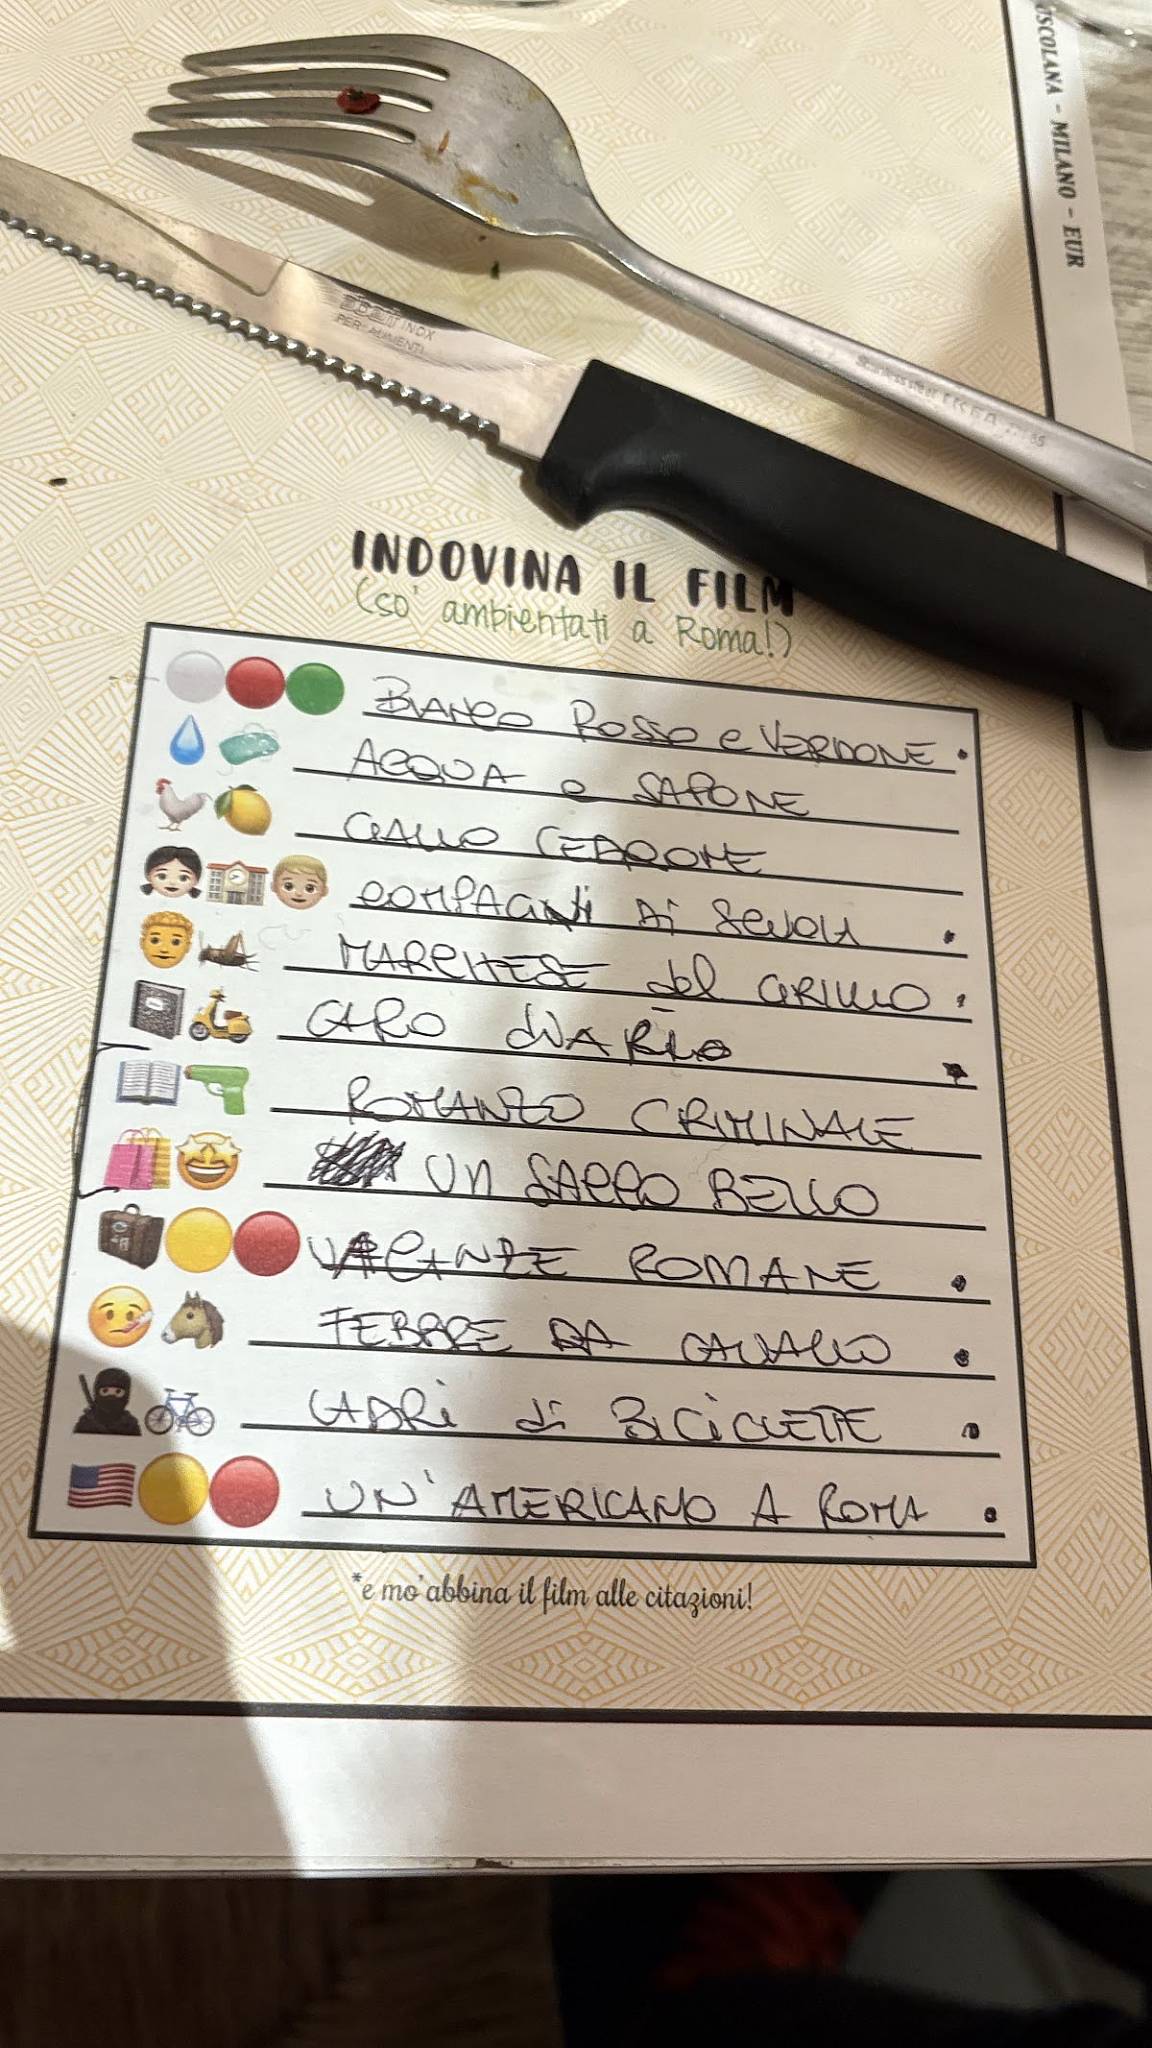 USCOLANA - MILANO - EUR
INOX
PER ALIMENTI
Stainless steel IKEA
INDOVINA IL FILM
(so' ambientati a Roma!)
BIANCO ROSSO e VERDONE
ACQUA e SAPONE
GALLO CEDRONE
COMPAGNI di SCUOLA
MARCHESE del GRILLO
CARO diARio
ROMANZO CRIMINALE
UN SACCO BELLO
VACANZE ROMANE
FEBBRE DA CAVALLO
LADRi di BiCiCLETTE
UN'AMERICANO A ROMA
*e mo' abbina il film alle citazioni!